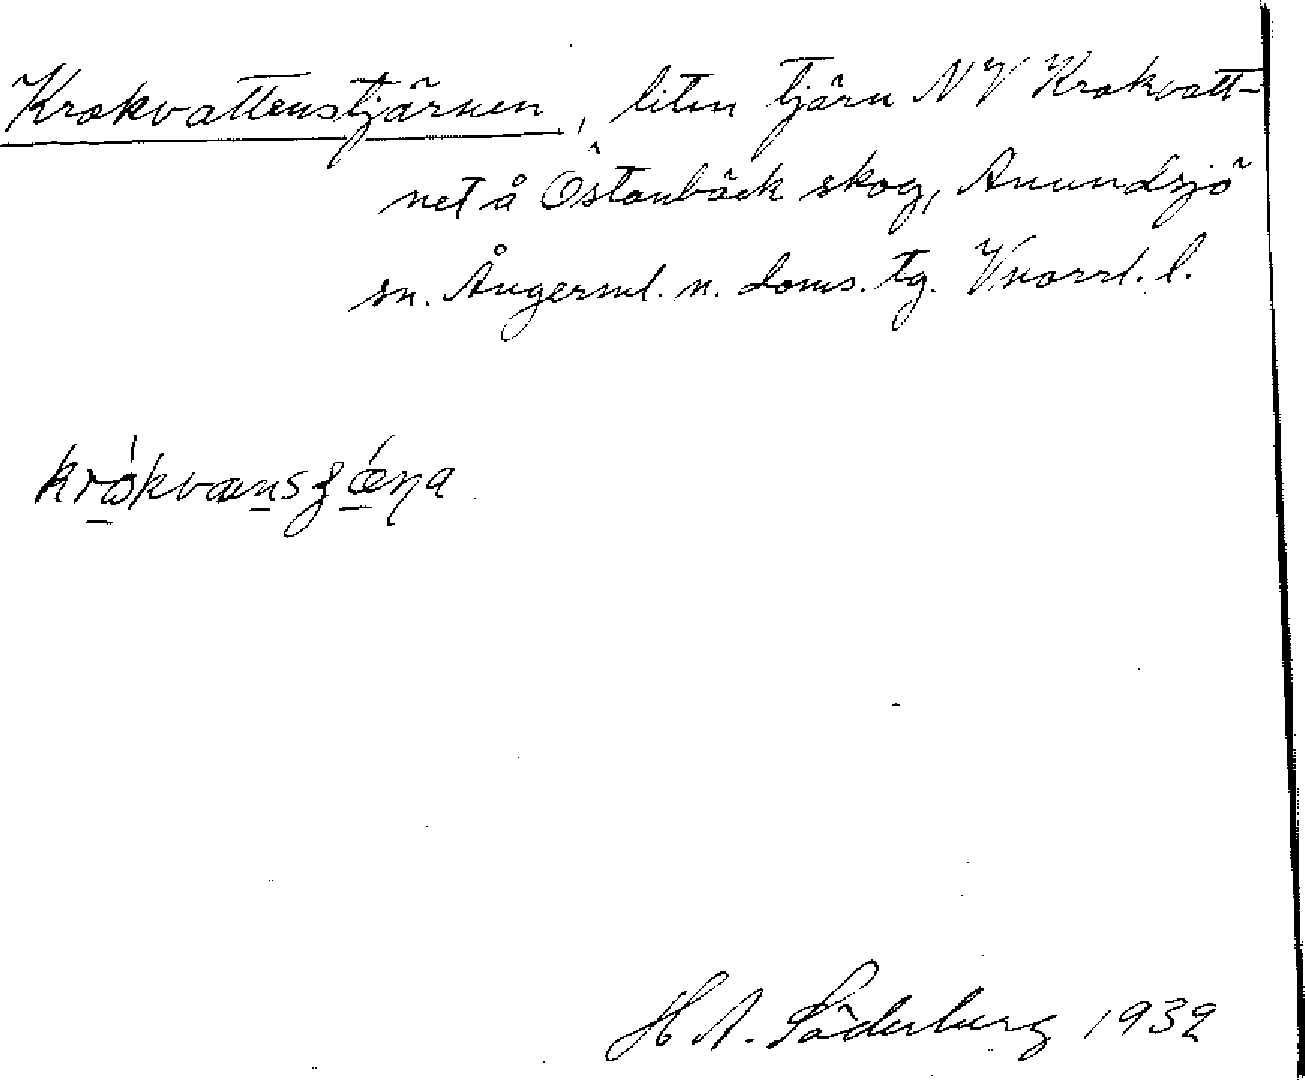 Krokvattenstjärnen, liten tjärn NV Krokvatt-
net å Östanbäck skog, Anundsjö
sn. Ångerml. n. doms. tg. Vnorrl. l.
H A. Söderberg 1932